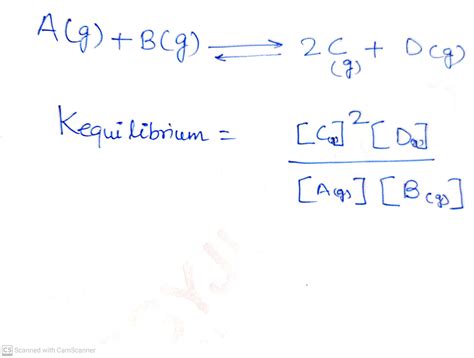 A(g) + B(g) ⇌ 2C(g) + D(g)
Kequilibrium = [C(g)]² [D(g)] / [A(g)] [B(g)]
CS Scanned with CamScanner